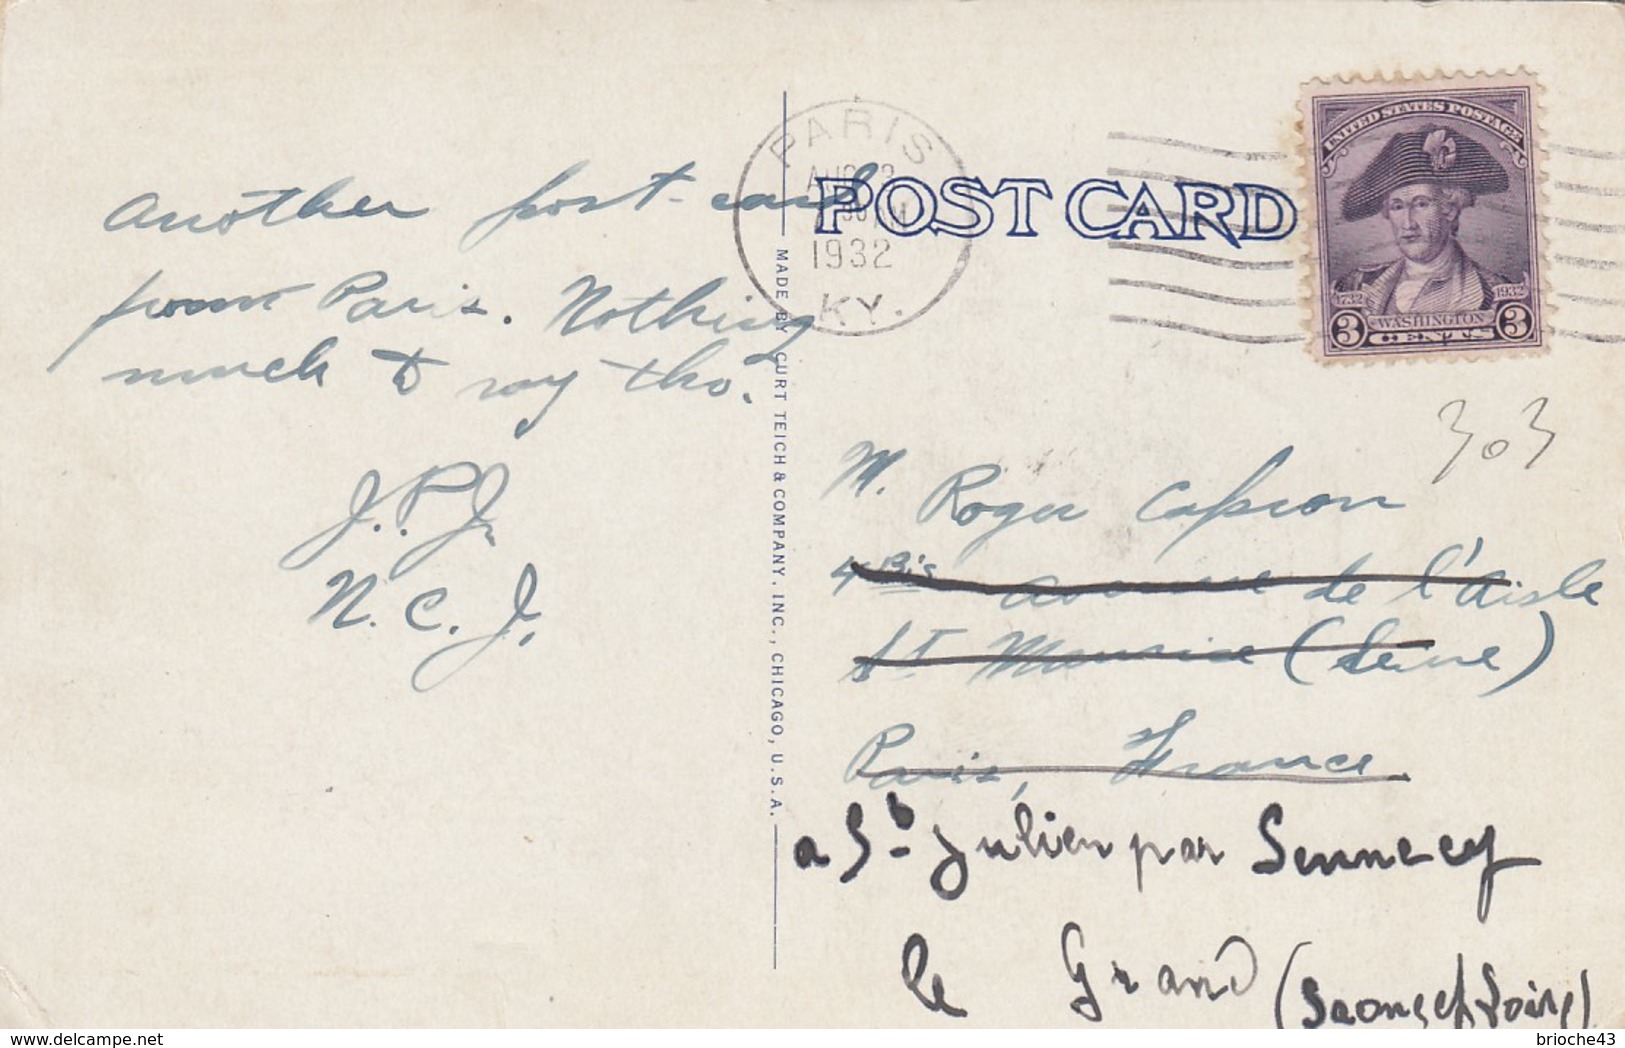 Another post-card
from Paris. Nothing
much to say tho.
J.P.J.
N.C.J.
MADE BY CURT TEICH & COMPANY, INC., CHICAGO, U.S.A.
PARIS
1932
KY.
POST CARD
UNITED STATES POSTAGE
1732 1932
WASHINGTON
3 CENTS 3
303
M. Roger Capron
4 Bis avenue de l'Aisle
St Maurice (Seine)
Paris, France.
a St Julien par Sennecey
le Grand (Saone et Loire)
delcampe.net
brioche43